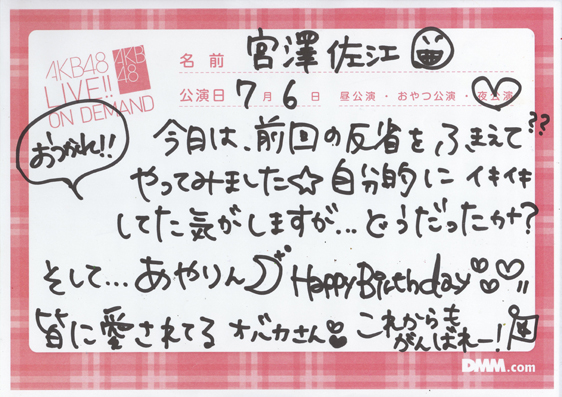 AKB48
LIVE!!
ON DEMAND
AKB
48
名前 宮澤佐江
公演日 7月6日 昼公演・おやつ公演・夜公演
おつかれ!!
今日は、前回の反省をふまえて??
やってみました☆自分的にイキイキ
してた気がしますが...どうだったかナ?
そして...あやりん HappyBirthday♡♡!!
皆に愛されてるオバカさん♡
これからも
がんばれー!
DMM.com